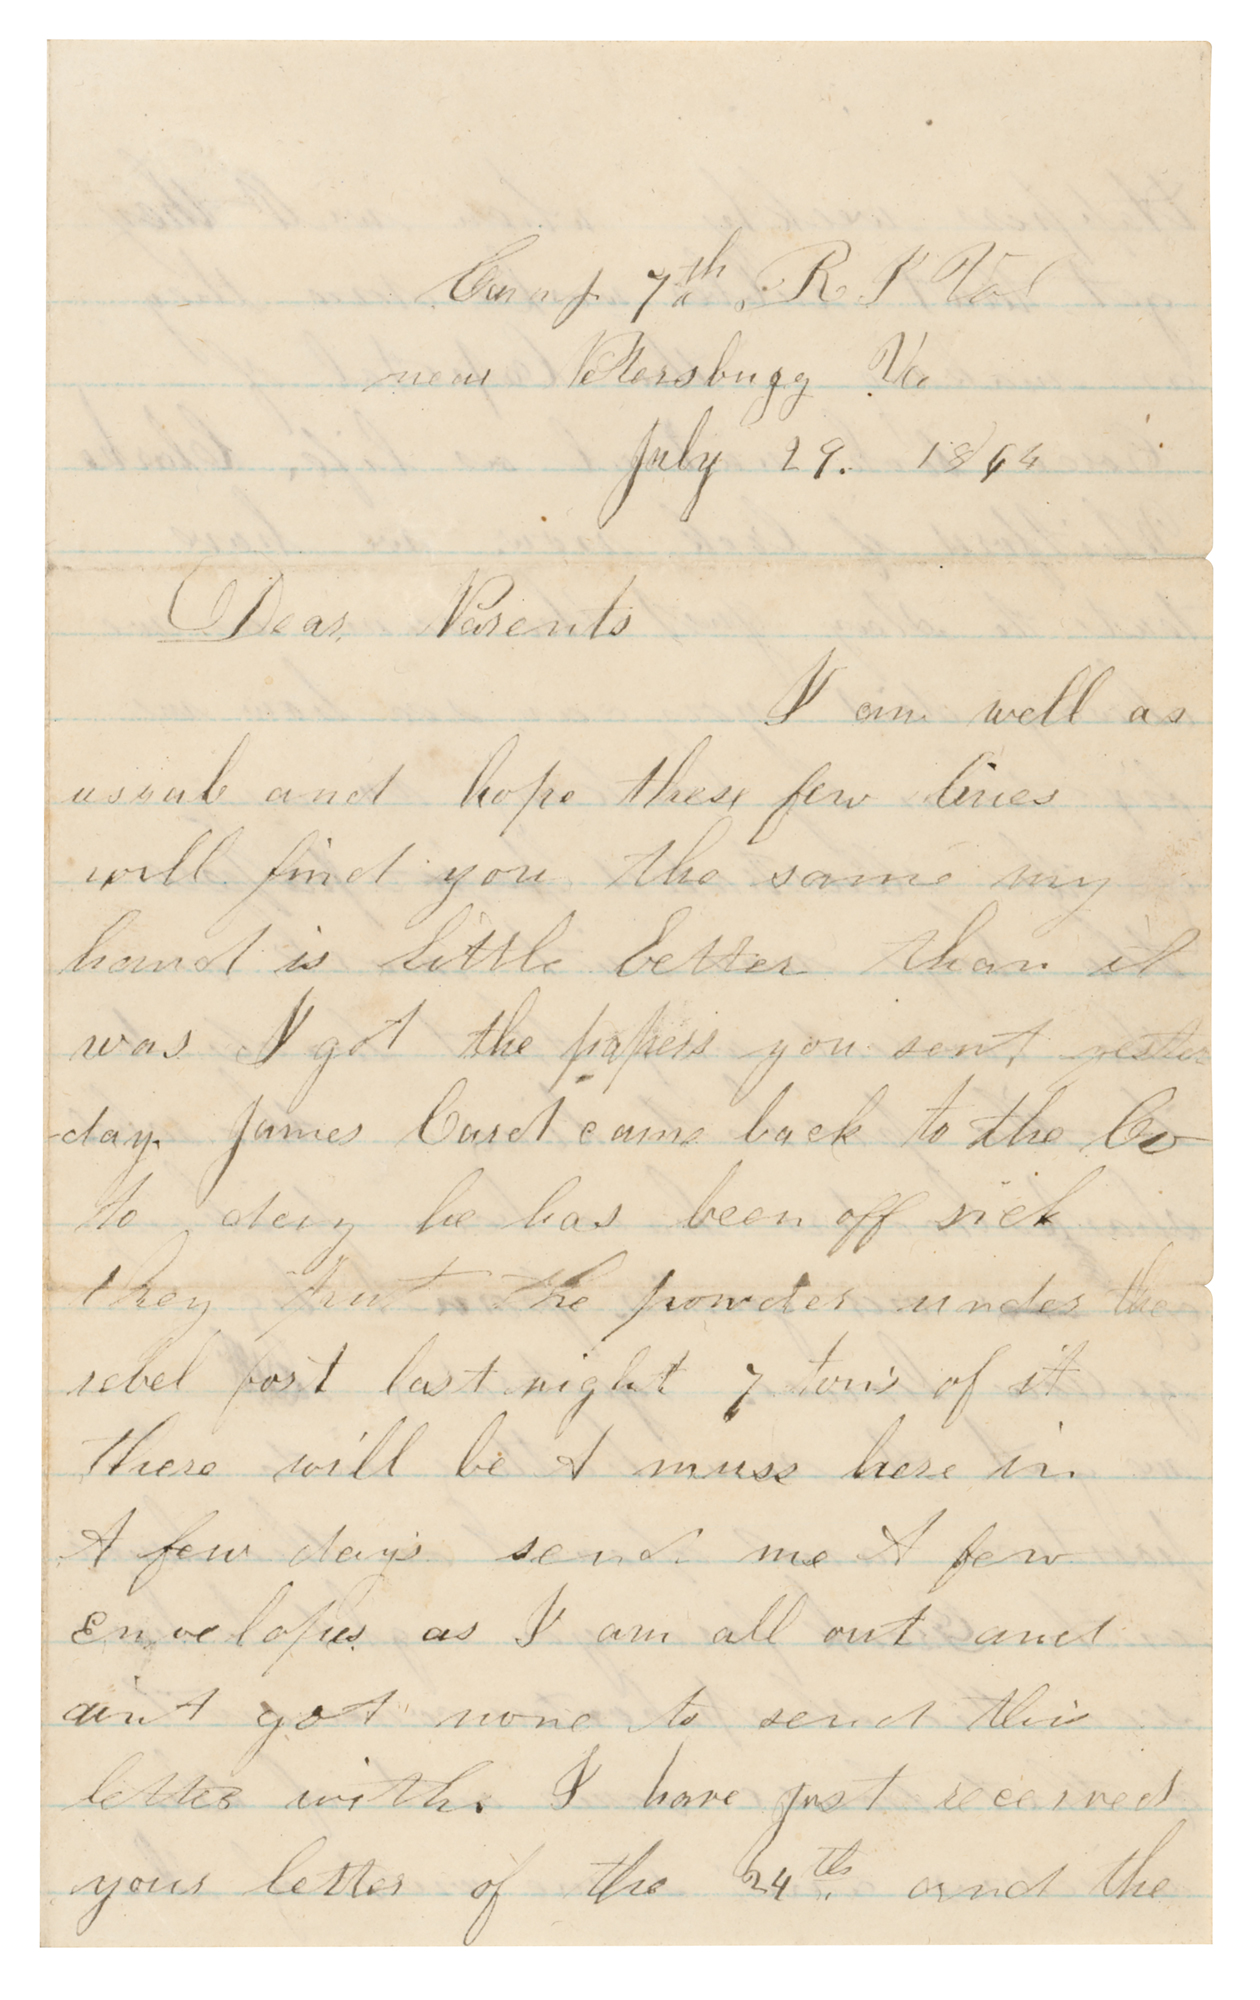 Camp 7th R I Vol
near Petersbugg Va
July 29. 1864
Dear Parents
I am well as
usual and hope these few lines
will find you the same my
hand is little better than it
was I got the papers you sent yester
-day. James Card came back to the Co
to day he has been off sick
they put the powder under the
rebel fort last night 7 tons of it
there will be A muss here in
A few days send me A few
Envelopes as I am all out and
aint got none to send this
letter with. I have just received
your letter of the 24th and the